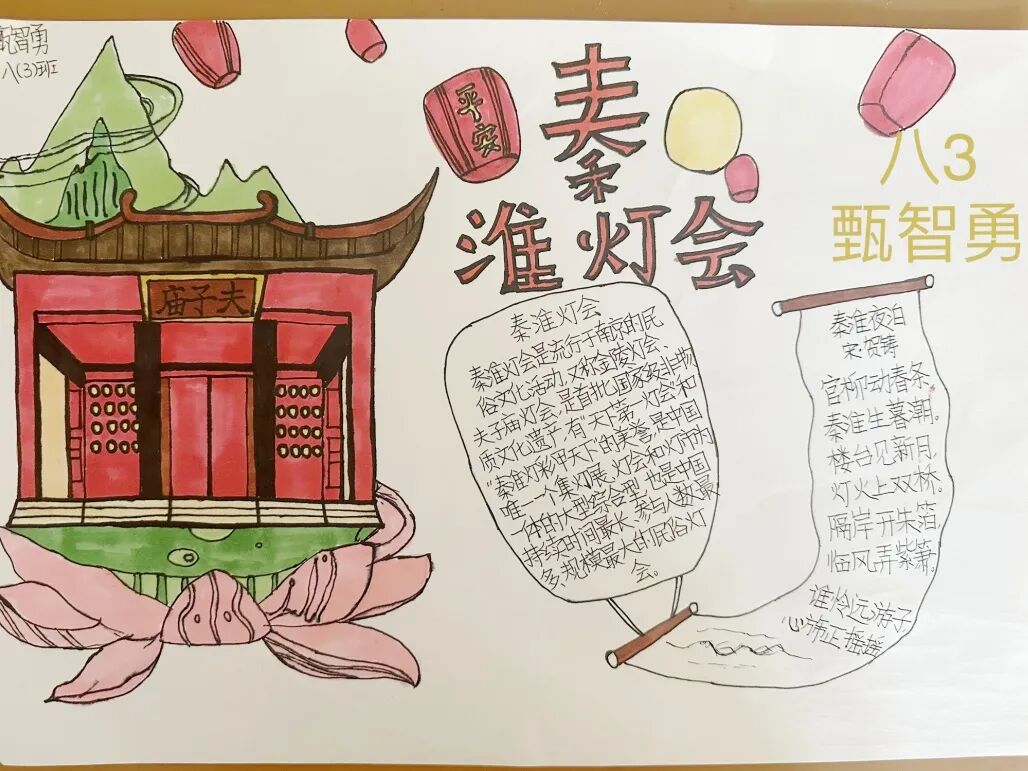 甄智勇
八(3)班
平安
秦
淮灯会
八3
甄智勇
夫子庙
秦淮灯会
秦淮灯会是流行于南京的民
俗文化活动,又称金陵灯会、
夫子庙灯会,是首批国家级非物
质文化遗产,有"天下第一灯会"和
"秦淮灯彩甲天下"的美誉,是中国
唯一一个集灯展、灯会和灯市为
一体的大型综合型,也是中国
持续时间最长、参与人数最
多、规模最大的民俗灯
会。
秦淮夜泊
宋·贺铸
官柳动春条,
秦淮生暮潮。
楼台见新月,
灯火上双桥。
隔岸开朱箔,
临风弄紫箫。
谁怜远游子
心旆正摇摇